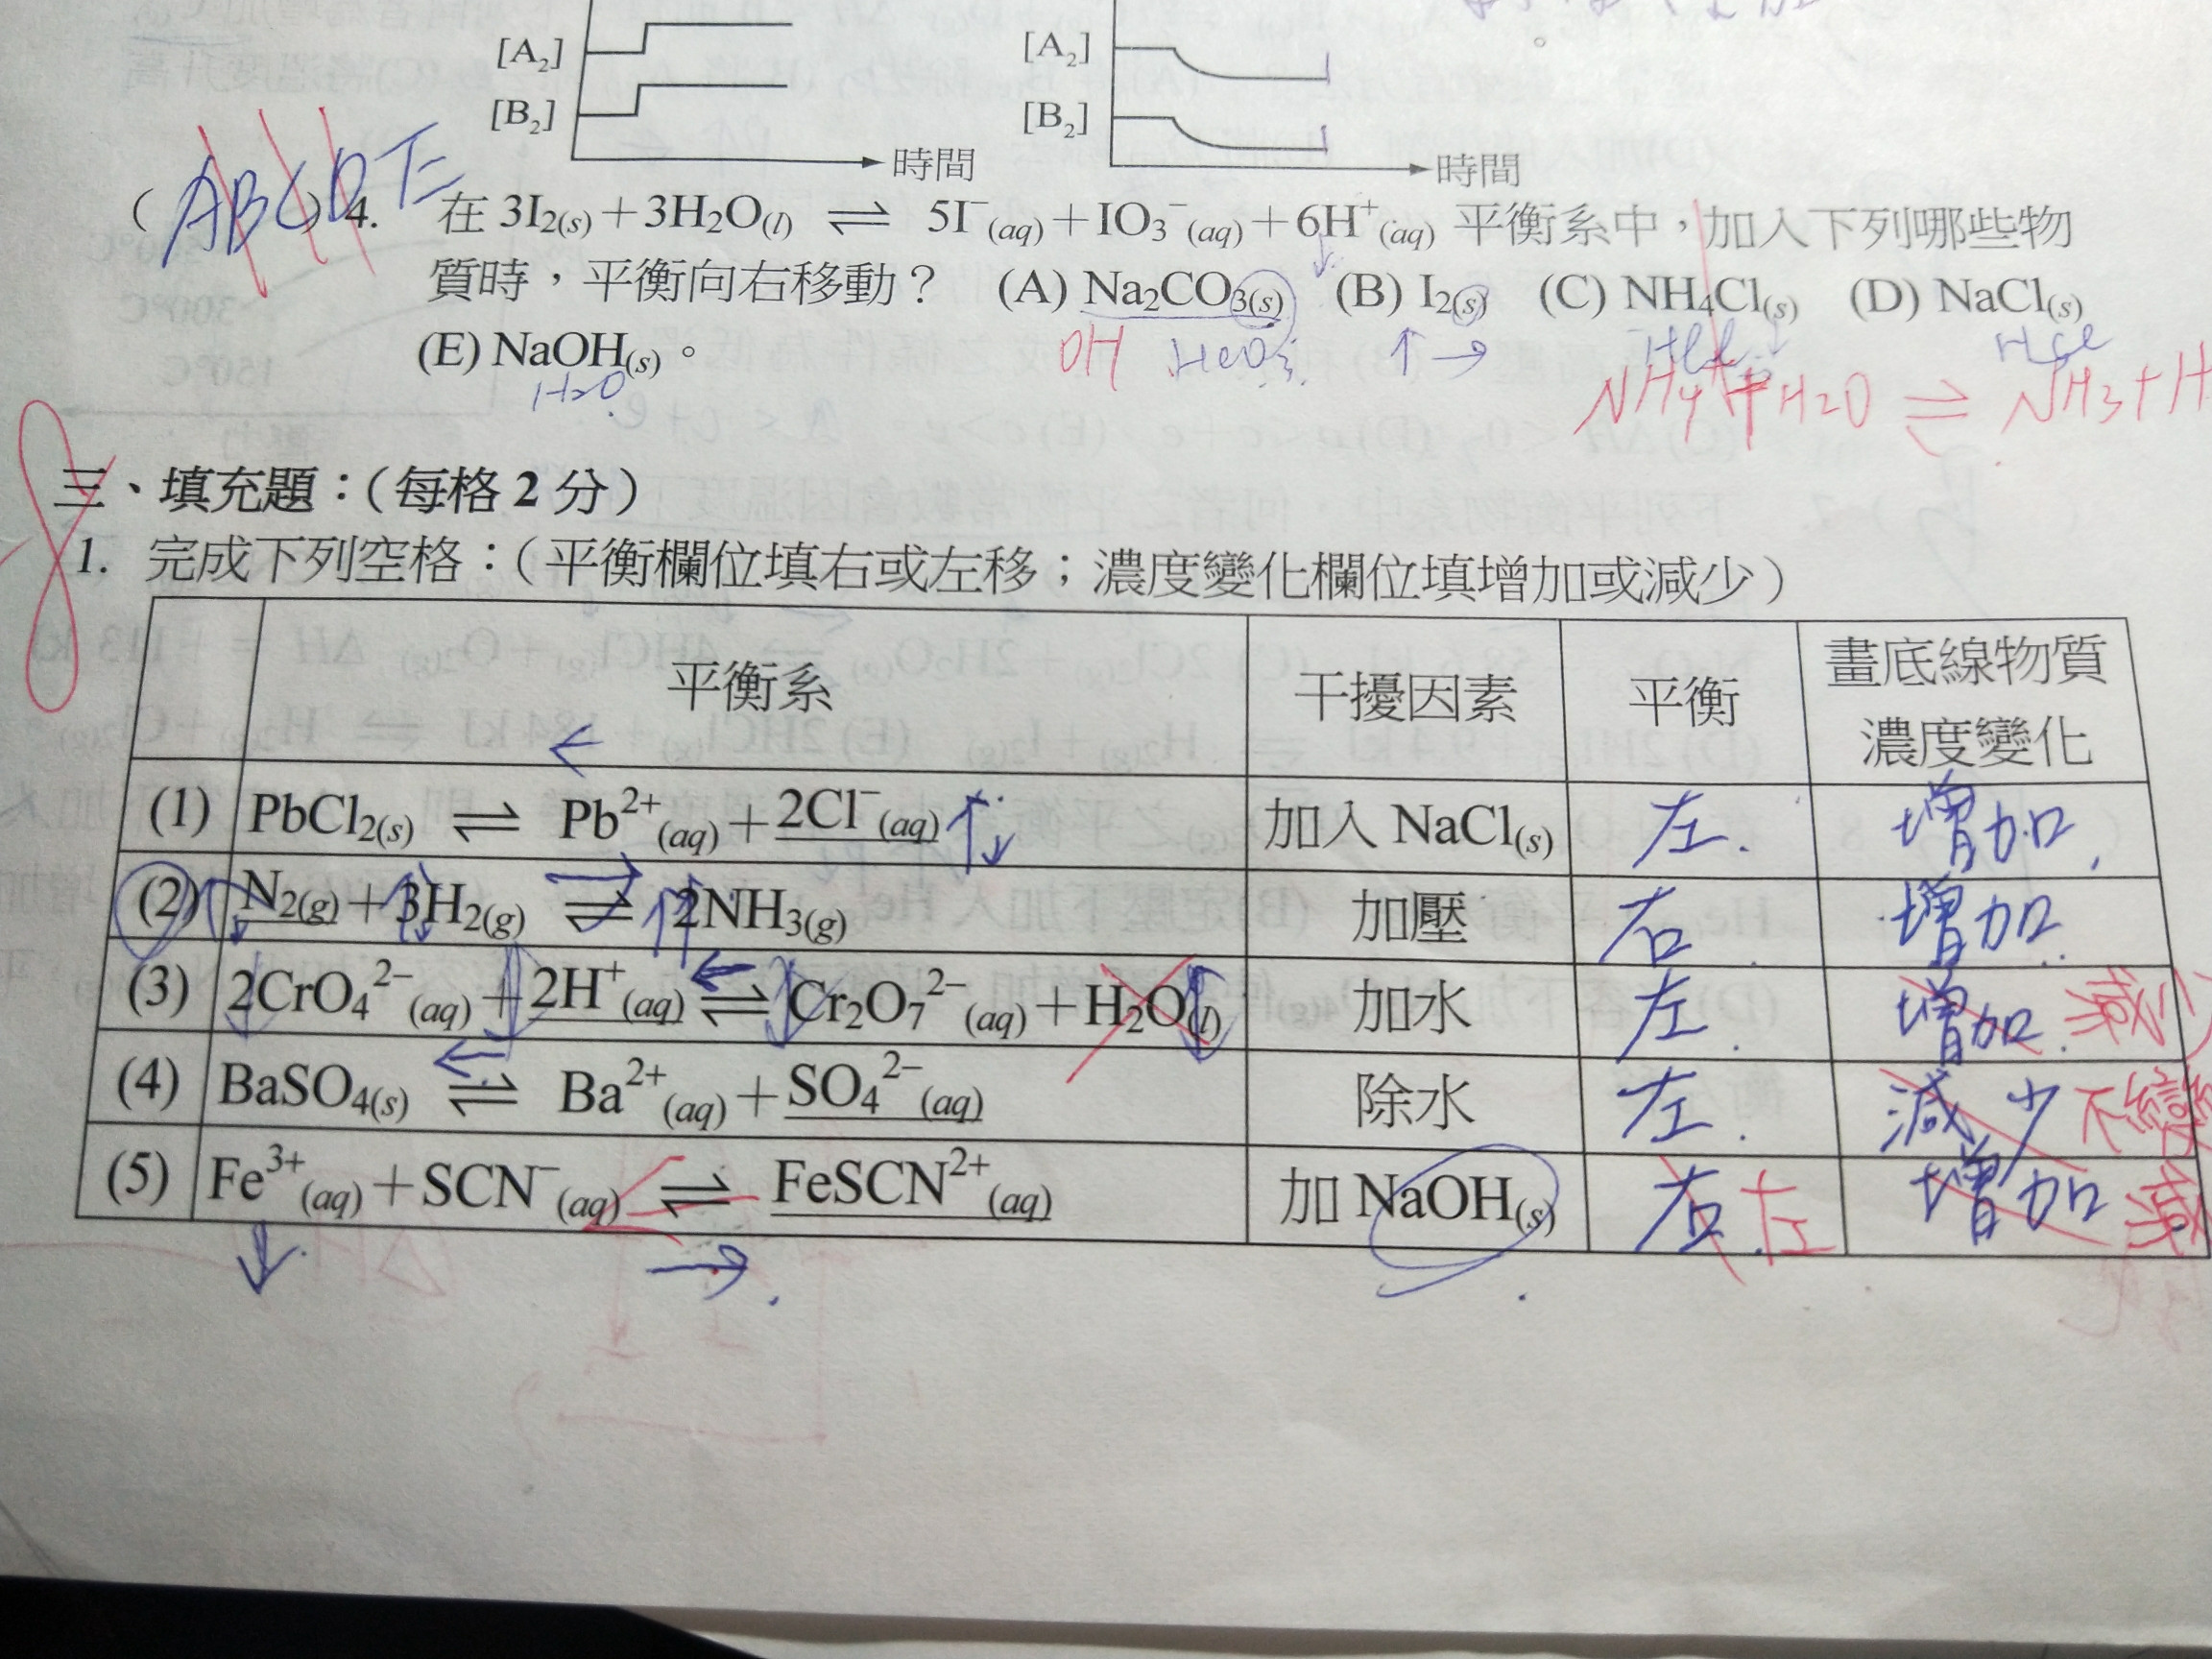 [A₂]
[B₂]
時間
[A₂]
[B₂]
時間
( ABCDE ) 4. 在 3I₂(s)+3H₂O(l) ⇌ 5I⁻(aq)+IO₃⁻(aq)+6H⁺(aq) 平衡系中，加入下列哪些物
質時，平衡向右移動？ (A) Na₂CO₃(s) (B) I₂(s) (C) NH₄Cl(s) (D) NaCl(s)
OH ↑ → HCl
(E) NaOH(s)。
H₂O
NH₄⁺+H₂O ⇌ NH₃+H
三、填充題：(每格 2 分)
1. 完成下列空格：(平衡欄位填右或左移；濃度變化欄位填增加或減少)
平衡系 干擾因素 平衡 畫底線物質
濃度變化
(1) PbCl₂(s) ⇌ Pb²⁺(aq)+2Cl⁻(aq) ↑↓ 加入 NaCl(s) 左 增加
(2) N₂(g)+3H₂(g) ⇌ 2NH₃(g) 加壓 右 增加
(3) 2CrO₄²⁻(aq)+2H⁺(aq) ⇌ Cr₂O₇²⁻(aq)+H₂O(l) 加水 左 增加 減少
(4) BaSO₄(s) ⇌ Ba²⁺(aq)+SO₄²⁻(aq) 除水 左 減少 不變
(5) Fe³⁺(aq)+SCN⁻(aq) ⇌ FeSCN²⁺(aq) 加 NaOH(s) 右 左 增加 減